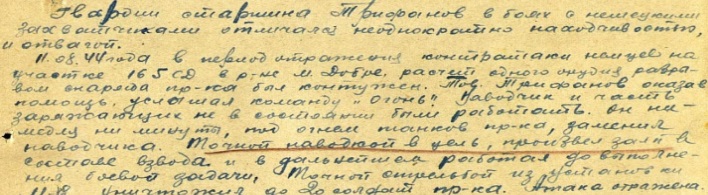 Гвардии старшина Трифанов в боях с немецкими
захватчиками отличался неоднократно находчивостью
и отвагой.
11.08.44 года в период отражения контратаки немцев на
участке 165 СД в р-не м. Добре, расчет одного орудия разры-
вом снаряда пр-ка был контужен. Тов. Трифанов оказав
помощь, услышал команду "Огонь". Наводчик и часть
заряжающих не в состоянии были работать. Он не-
медля ни минуты, под огнем танков пр-ка, заменил
наводчика. Точной наводкой в цель, произвел залп в
составе взвода и в дальнейшем работал до выполне-
ния боевой задачи. Точной стрельбой из установки
уничтожил до солдат пр-ка. Атака отражена.